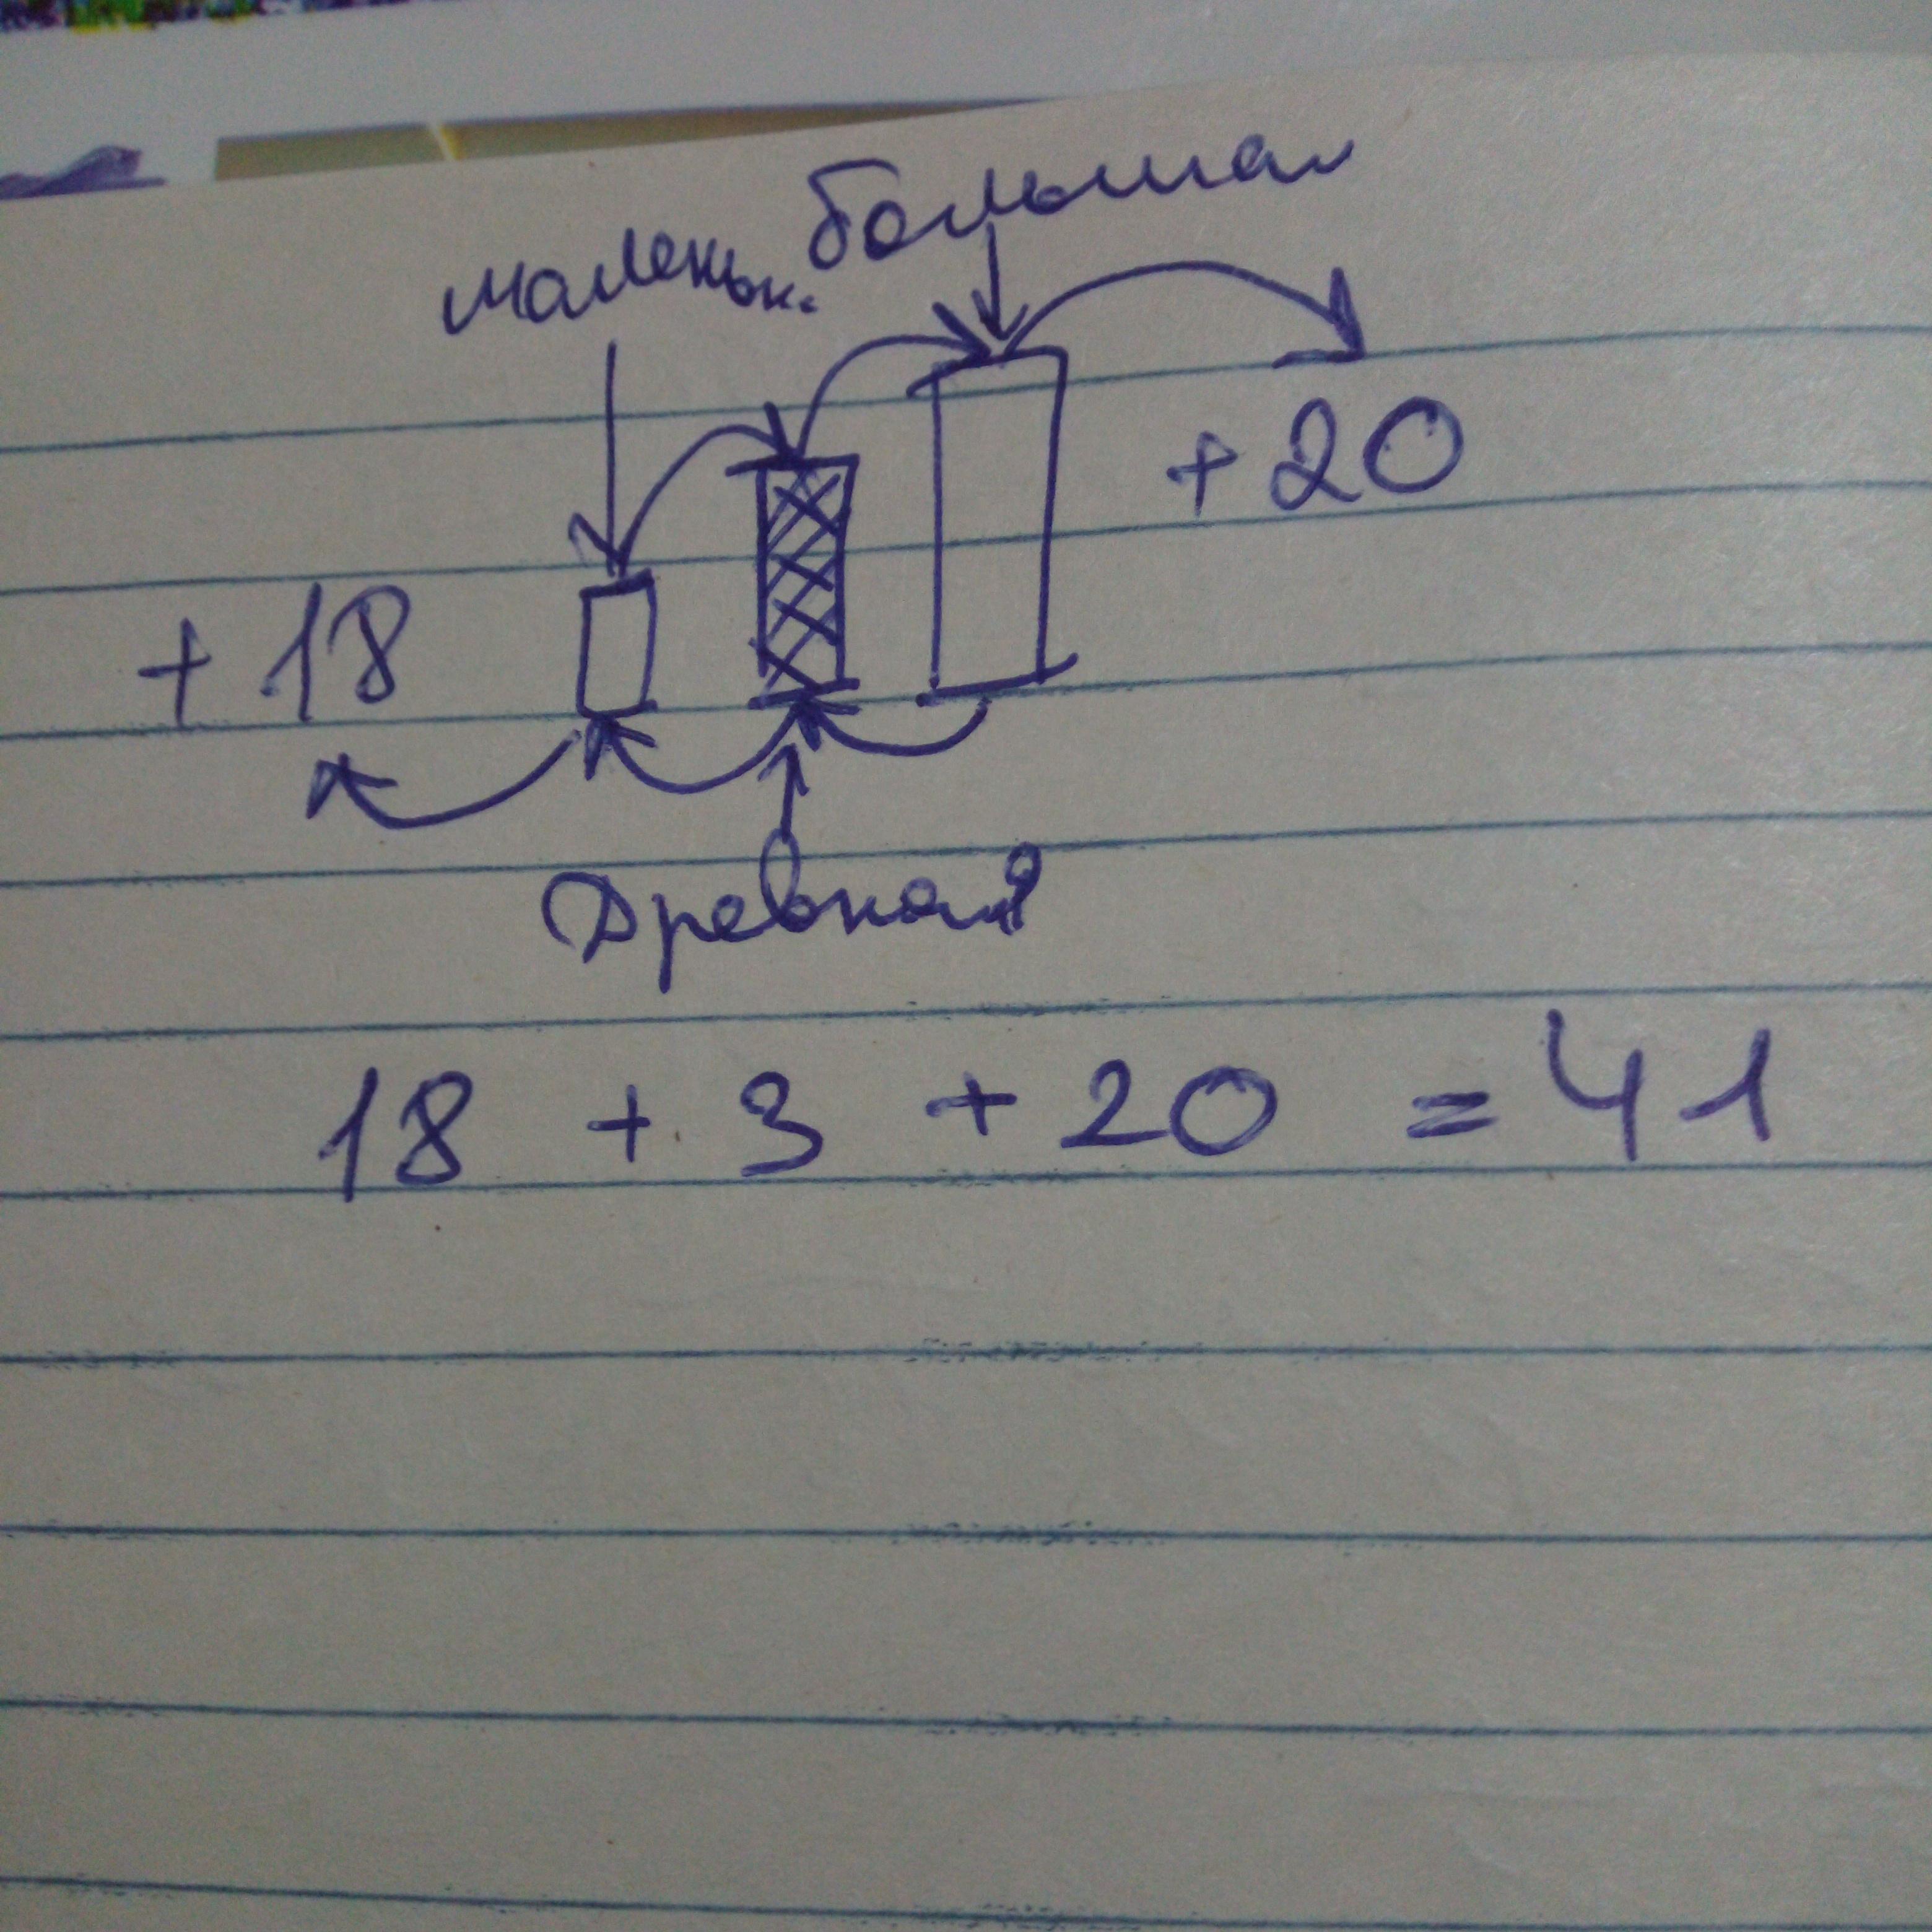 маленьк. большая
+ 20
+ 18
Древная
18 + 3 + 20 = 41